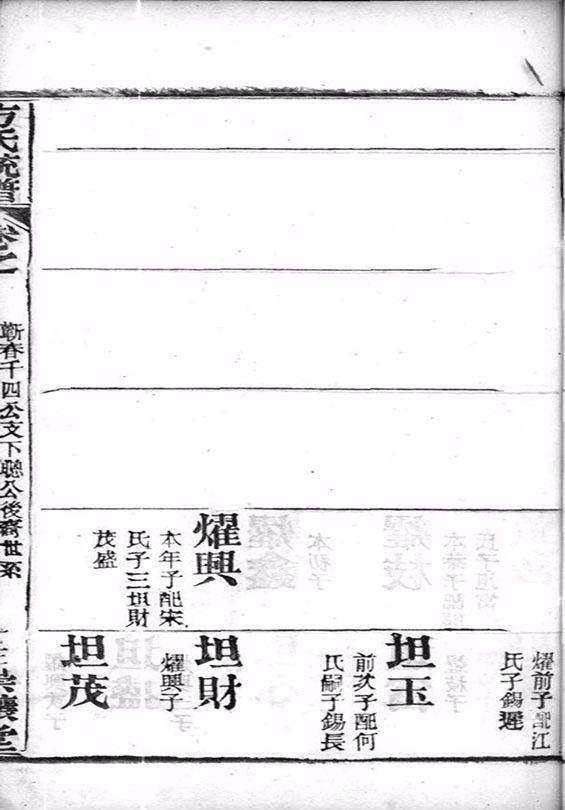 耀興
本年子配宋
氏子三坦財
茂盛
耀前子配江
氏子錫遲
坦玉
前次子配何
氏嗣子錫長
坦財
耀興子
坦茂
方氏統譜
卷之
蘄春千四公文下聰公後裔世系